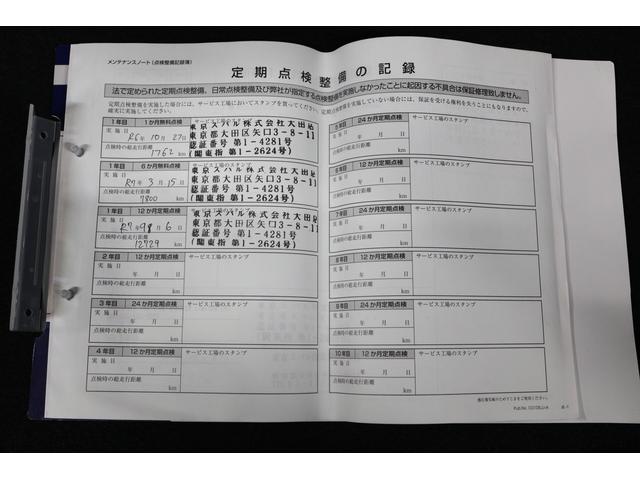 メンテナンスノート(点検整備記録簿)
定期点検整備の記録
法で定められた定期点検整備、日常点検整備及び弊社が指定する点検整備を実施しなかったことに起因する不具合は保証修理致しません。
定期点検整備を実施した場合には、サービス工場においてスタンプを貰ってください。定期点検整備を実施していない場合には、保証を受ける権利を失うことにもなりますので、
確実に実施してください。
1年目 1か月無料点検 サービス工場のスタンプ
実施日
R6年10月27日
点検時の総走行距離
1762 km
東京スバル株式会社大田店
東京都大田区矢口3-8-11
認証番号 第1-4281号
(関東指 第1-2624号)
1年目 6か月無料点検 サービス工場のスタンプ
実施日
R7年3月15日
点検時の総走行距離
7800 km
東京スバル株式会社大田店
東京都大田区矢口3-8-11
認証番号 第1-4281号
(関東指 第1-2624号)
1年目 12か月定期点検 サービス工場のスタンプ
実施日
点検時の総走行距離
12729 km
東京スバル株式会社大田店
東京都大田区矢口3-8-11
認証番号 第1-4281号
(関東指 第1-2624号)
2年目 12か月定期点検 サービス工場のスタンプ
実施日
年 月 日
点検時の総走行距離
km
3年目 24か月定期点検 サービス工場のスタンプ
実施日
年 月 日
点検時の総走行距離
km
4年目 12か月定期点検 サービス工場のスタンプ
実施日
年 月 日
点検時の総走行距離
km
5年目 24か月定期点検 サービス工場のスタンプ
実施日
年 月 日
点検時の総走行距離
km
6年目 12か月定期点検 サービス工場のスタンプ
実施日
年 月 日
点検時の総走行距離
km
7年目 24か月定期点検 サービス工場のスタンプ
実施日
年 月 日
点検時の総走行距離
km
8年目 12か月定期点検 サービス工場のスタンプ
実施日
年 月 日
点検時の総走行距離
km
9年目 24か月定期点検 サービス工場のスタンプ
実施日
年 月 日
点検時の総走行距離
km
10年目 12か月定期点検 サービス工場のスタンプ
実施日
年 月 日
点検時の総走行距離
km